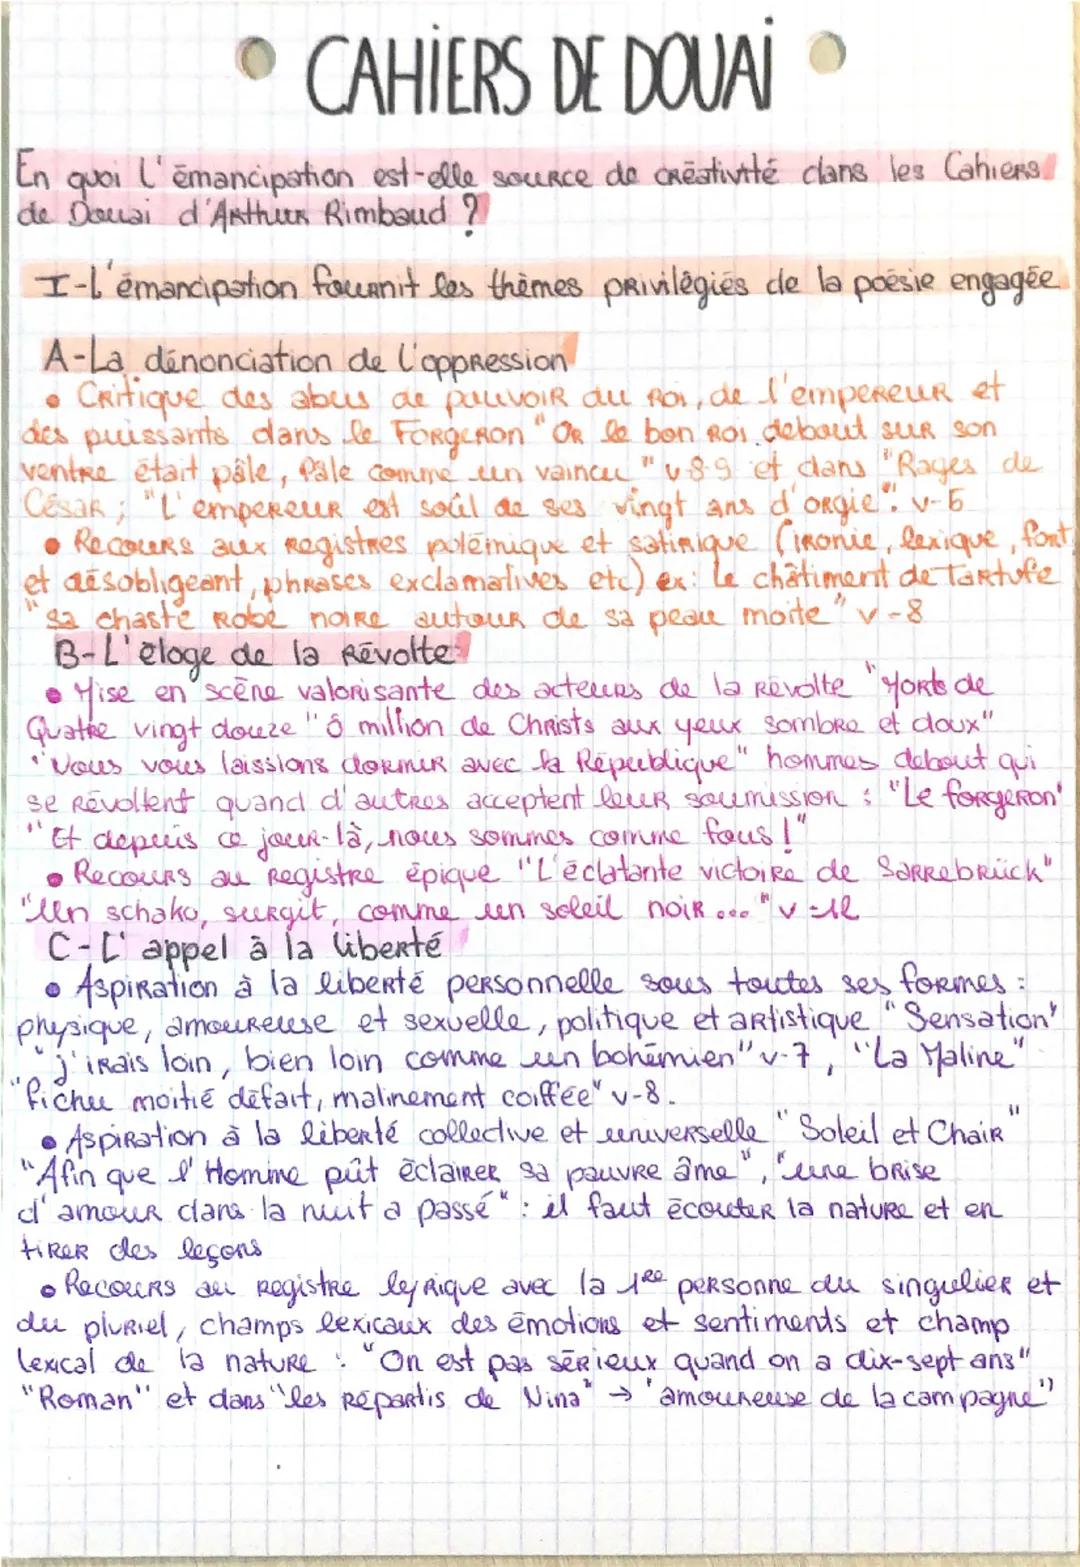 • CAHiERS DE DOUAi •
En quoi l'émancipation est-elle source de créativité dans les Cahiers
de Douai d'Arthur Rimbaud ?
I-L'émancipation fournit les thèmes privilégiés de la poésie engagée
A-La dénonciation de l'oppression
• Critique des abus de pouvoir du roi, de l'empereur et
des puissants dans le Forgeron "Or le bon roi debout sur son
ventre était pâle, Pâle comme un vaincu" v-8-9 et dans "Rages de
César ; "L'empereur est soûl de ses vingt ans d'orgie". v-5
• Recours aux registres polémique et satirique (ironie, lexique, font
et désobligeant, phrases exclamatives etc) ex: Le châtiment de Tartufe
"sa chaste robe noire autour de sa peau moite" v-8
B-L'éloge de la révolte
• Mise en scène valorisante des acteurs de la révolte "Morts de
Quatre vingt douze" "ô million de Christs aux yeux sombre et doux"
"Nous vous laissions dormir avec la République" hommes debout qui
se révoltent quand d'autres acceptent leur soumission : "Le forgeron"
"Et depuis ce jour-là, nous sommes comme fous !"
• Recours au registre épique "L'éclatante victoire de Sarrebrück"
"Un schako, surgit, comme un soleil noir..." v-12
C-L'appel à la liberté
• Aspiration à la liberté personnelle sous toutes ses formes :
physique, amoureuse et sexuelle, politique et artistique "Sensation"
"j'irais loin, bien loin comme un bohémien" v-7, "La Maline"
"fichu moitié défait, malinement coiffée" v-8.
• Aspiration à la liberté collective et universelle "Soleil et Chair"
"Afin que l'Homme pût éclairer sa pauvre âme", "une brise
d'amour dans la nuit a passé" : il faut écouter la nature et en
tirer des leçons
• Recours au registre lyrique avec la 1re personne du singulier et
du pluriel, champs lexicaux des émotions et sentiments et champ
lexical de la nature : "On est pas sérieux quand on a dix-sept ans"
"Roman" et dans "les répartis de Nina" → "amoureuse de la campagne"